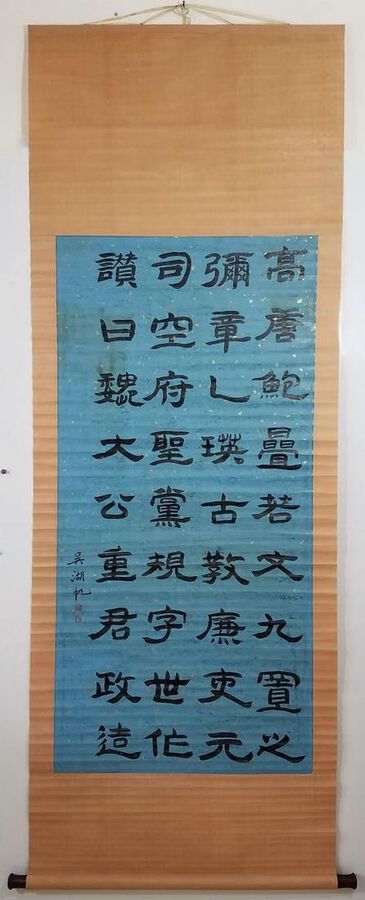 高唐鮑疊若文九置之
彌章乚瑛古敎廉吏元
司空府聖黨規字世作
讃曰魏大公重君政造
吳湖帆